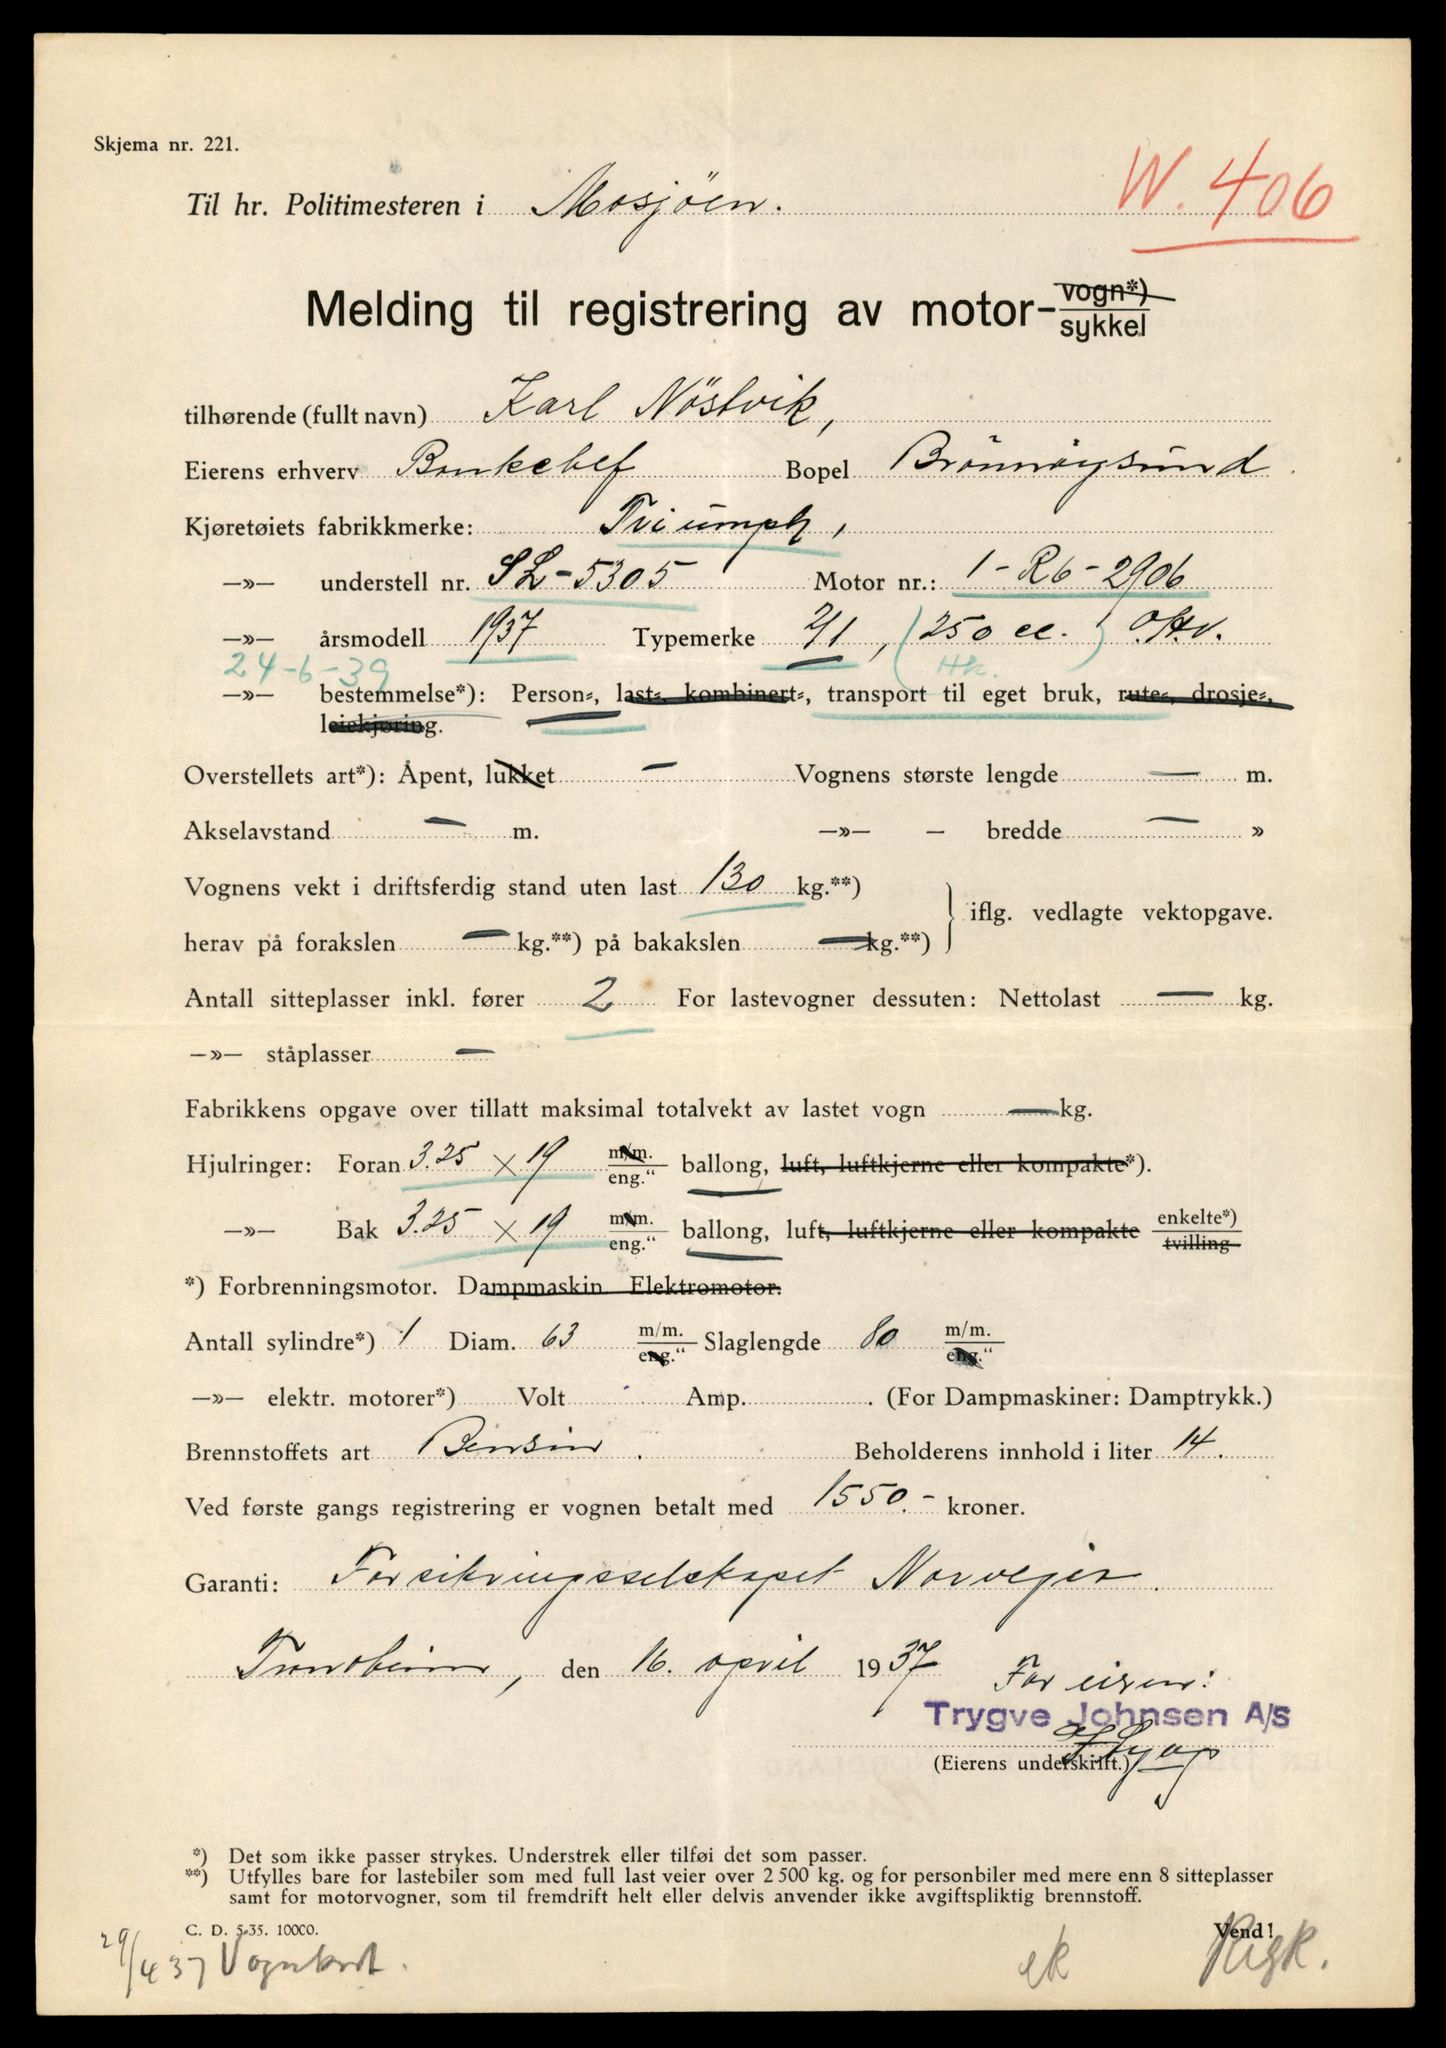 Skjema nr. 221.
W. 406
Til hr. Politimesteren i Mosjöen.
Melding til registrering av motor- vogn*) sykkel
tilhørende (fullt navn) Karl Nöstvik,
Eierens erhverv Bankchef Bopel Brönnöysund.
Kjøretøiets fabrikkmerke: Triumph,
—»— understell nr. SL-5305 Motor nr.: 1-R6-2906
—»— årsmodell 1937 Typemerke 2/1, (250 cc.) O.H.V.
24-6-39 Hk.
—»— bestemmelse*): Person-, last-, kombinert-, transport til eget bruk, rute-, drosje-,
leiekjøring.
Overstellets art*): Åpent, lukket — Vognens største lengde — m.
Akselavstand — m. —»— – bredde — »
Vognens vekt i driftsferdig stand uten last 130 kg.**)
iflg. vedlagte vektopgave.
herav på forakslen — kg.**) på bakakslen — kg.**)
Antall sitteplasser inkl. fører 2 For lastevogner dessuten: Nettolast — kg.
—»— ståplasser —
Fabrikkens opgave over tillatt maksimal totalvekt av lastet vogn — kg.
Hjulringer: Foran 3.25 × 19 m/m. eng.“ ballong, luft, luftkjerne eller kompakte*).
—»— Bak 3.25 × 19 m/m. eng.“ ballong, luft, luftkjerne eller kompakte enkelte*) tvilling
*) Forbrenningsmotor. Dampmaskin Elektromotor.
Antall sylindre*) 1 Diam. 63 m/m. eng.“ Slaglengde 80 m/m. eng.“
—»— elektr. motorer*) Volt Amp. . (For Dampmaskiner: Damptrykk.)
Brennstoffets art Bensin . Beholderens innhold i liter 14.
Ved første gangs registrering er vognen betalt med 1550.- kroner.
Garanti: Forsikringsselskapet Norvegia.
Trondheim, den 16. april 1937 For eieren:
Trygve Johnsen A/S
(Eierens underskrift.)
*) Det som ikke passer strykes. Understrek eller tilføi det som passer.
**) Utfylles bare for lastebiler som med full last veier over 2 500 kg. og for personbiler med mere enn 8 sitteplasser
samt for motorvogner, som til fremdrift helt eller delvis anvender ikke avgiftspliktig brennstoff.
C. D. 5-35. 10000. Vend!
29/4 37 Vognkort. ek